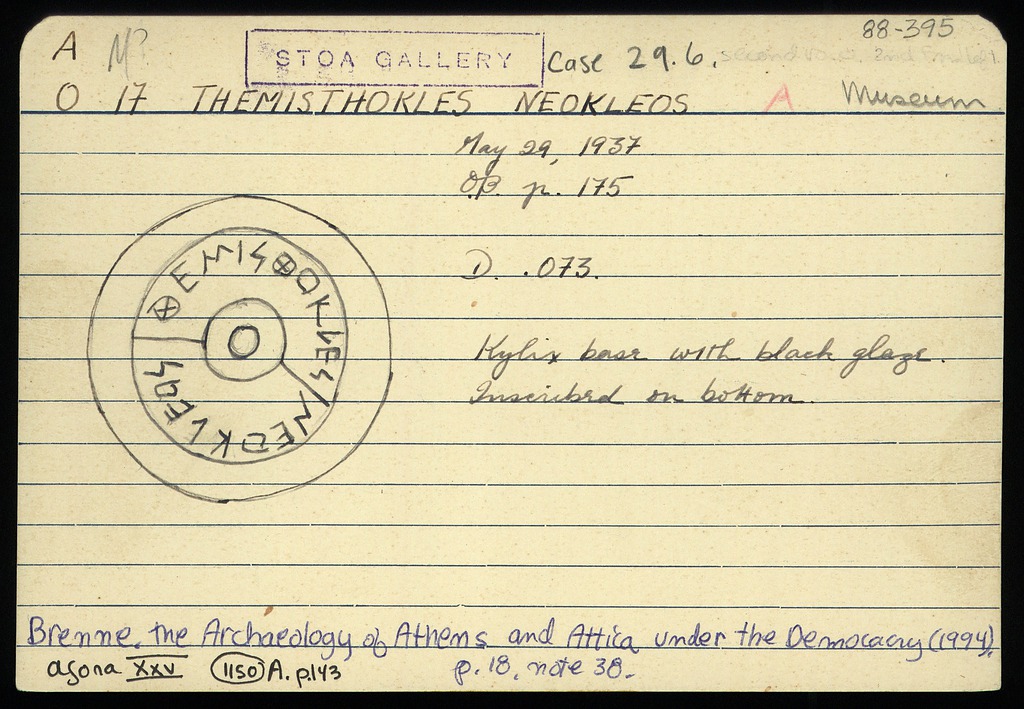 A
STOA GALLERY
Case 29.6.
88-395
O 17 THEMISTHOKLES NEOKLEOS
A
Museum
May 29, 1937
OB p. 175
D. .073.
⊗EMIS⊕OKLES
NEOKLEOS
Kylix base with black glaze.
Inscribed on bottom.
Brenne, the Archaeology of Athens and Attica under the Democacry (1994),
p. 18, note 38.
agora XXV 1150 A. p.143